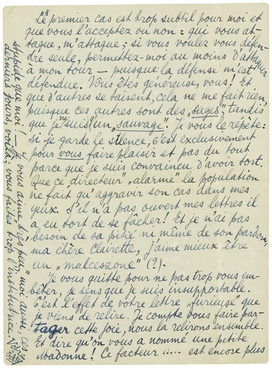 Le premier cas est trop subtil pour moi et
que vous l'acceptez ou non : qui vous at-
taque, m'attaque ; si vous voulez vous défen-
dre seule, permettez-moi au moins d'attaquer
à mon tour — puisque la défense m'est
défendue. Vous êtes généreuse, vous ! Et
que d'autres se taisent, cela ne me fait rien,
puisque ces autres sont des "sages" tandis
que je "suis un sauvage". Je vous le répète :
si je garde le silence, c'est exclusivement
pour vous faire plaisir et pas du tout
parce que je suis convaincu d'avoir tort.
Que ce directeur "alarme" la population
ne fait qu'aggraver son cas dans mes
yeux. S'il n'a pas ouvert mes lettres il
a eu tort de se fâcher ! Et je n'ai pas
besoin de sa pitié ne même de son pardon,
ma chère Clairette, j'aime mieux être
un
Je vous quitte pour ne pas trop vous em-
bêter, je sens que je suis insupportable.
C'est l'effet de votre lettre "furieuse" que
je viens de relire. Je compte vous faire par-
tager cette joie, nous la relirons ensemble.
Et dire qu'on vous a nommé une petite
Ce facteur ..... est encore plus
stupide que moi ! — Je vous
derniers jours, voilà, vous faites trop l'institutrice